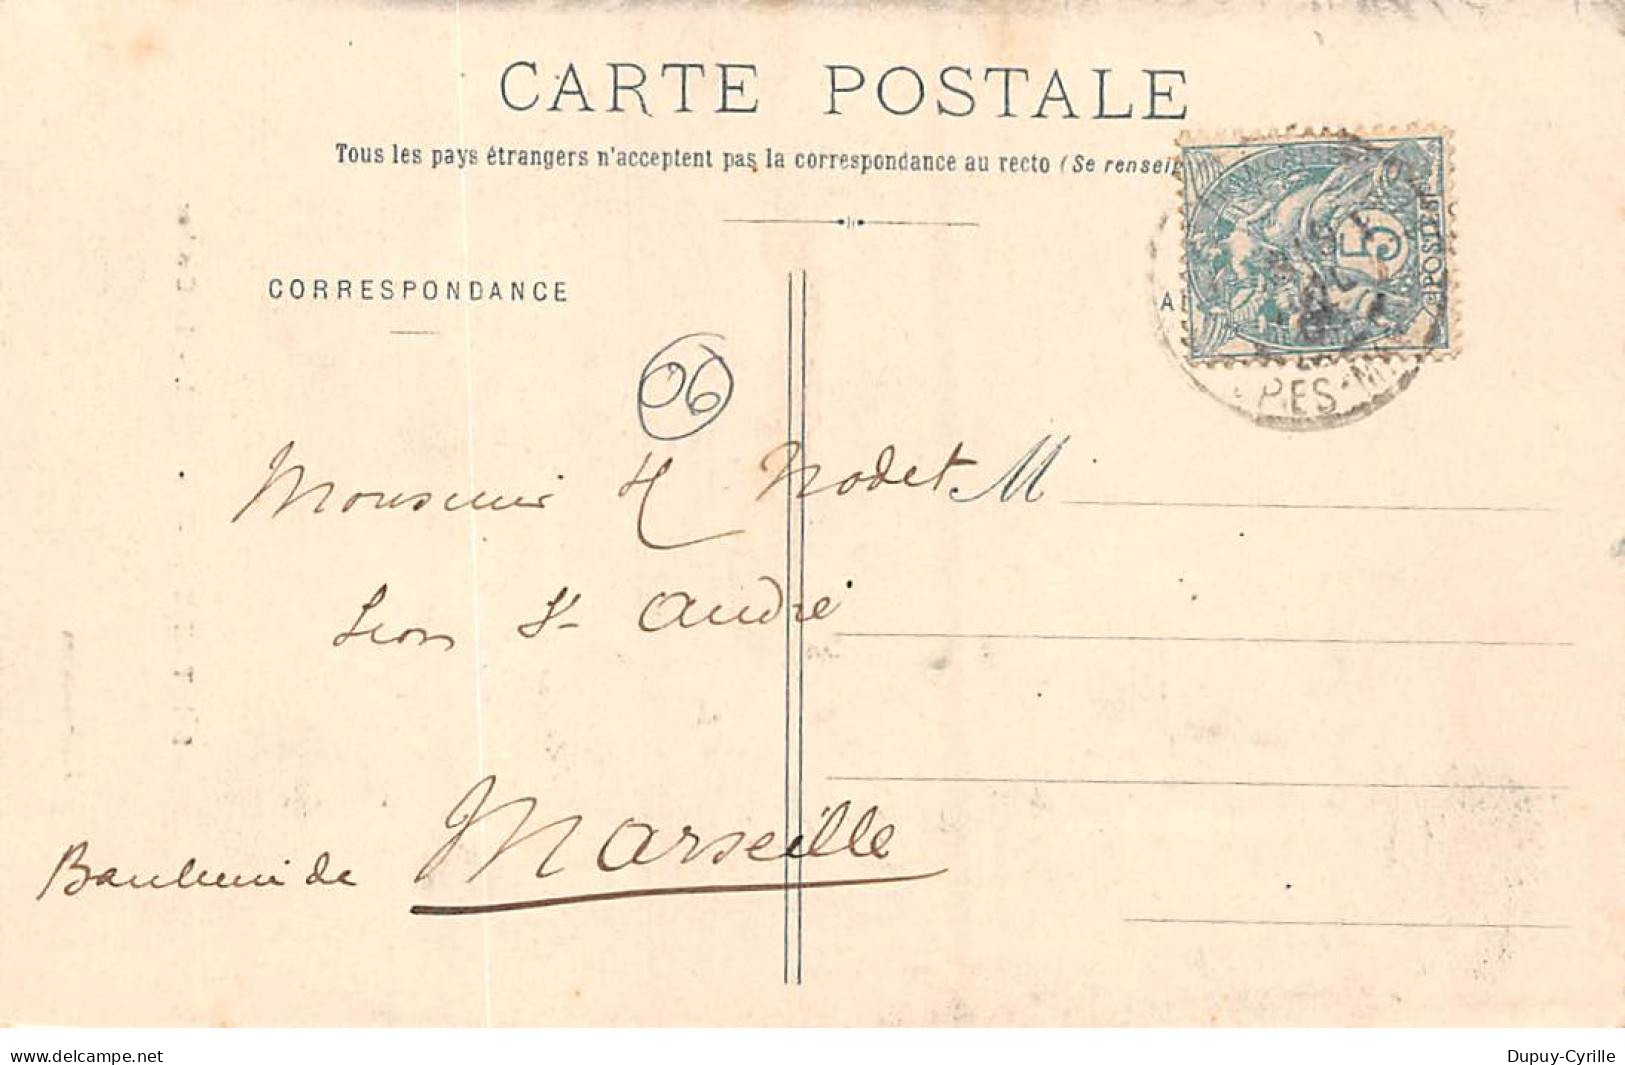 CARTE POSTALE
Tous les pays étrangers n'acceptent pas la correspondance au recto (Se renseig
5
POSTES
CORRESPONDANCE
PES-M
06
Monsieur H Nodet M
St André
Banlieue de Marseille
www.delcampe.net
Dupuy-Cyrille